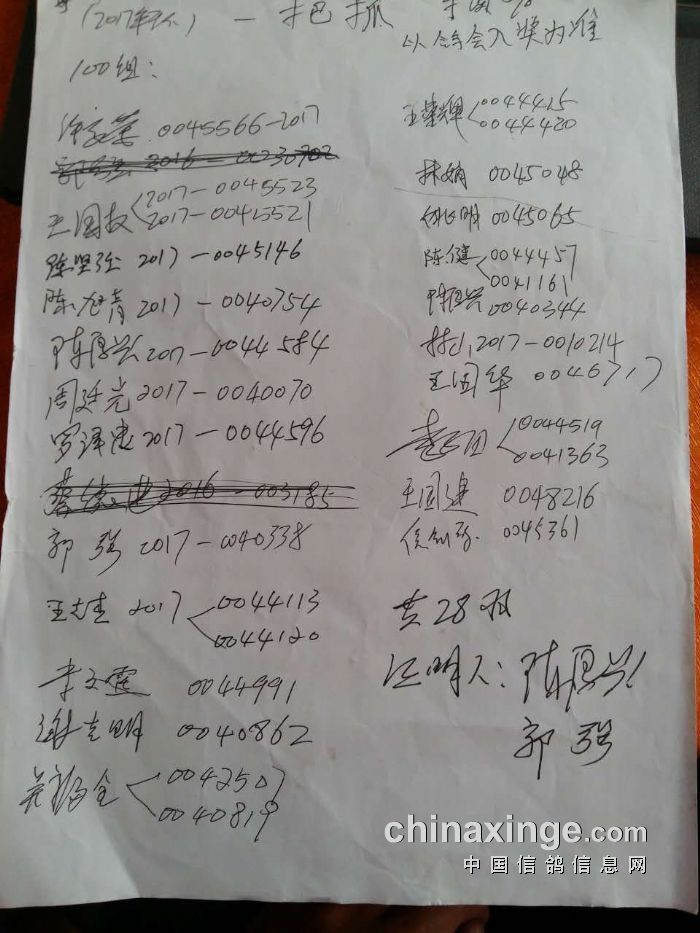 (2017年环) 一把抓
以鸽会入奖为准
100组:
0045566-2017
2016-00230702
王国权 2017-0045523
2017-0045521
陈坚强 2017-0045146
陈旭青 2017-0040754
陈厚兴 2017-0044584
周廷光 2017-0040070
罗泽忠 2017-0044596
2016-003185
郭强 2017-0040338
王志杰 2017 0044113
0044120
李文霞 0044991
谢志明 0040862
0042507
0040819
王荣辉 0044415
0044420
林娟 0045048
0045065
陈健 0044457
0041161
陈厚兴 0040344
林山 2017-0010214
王国华 0046717
0044519
0041363
王国建 0048216
0045361
共28羽
证明人:陈厚兴
郭强
chinaxinge.com
中国信鸽信息网